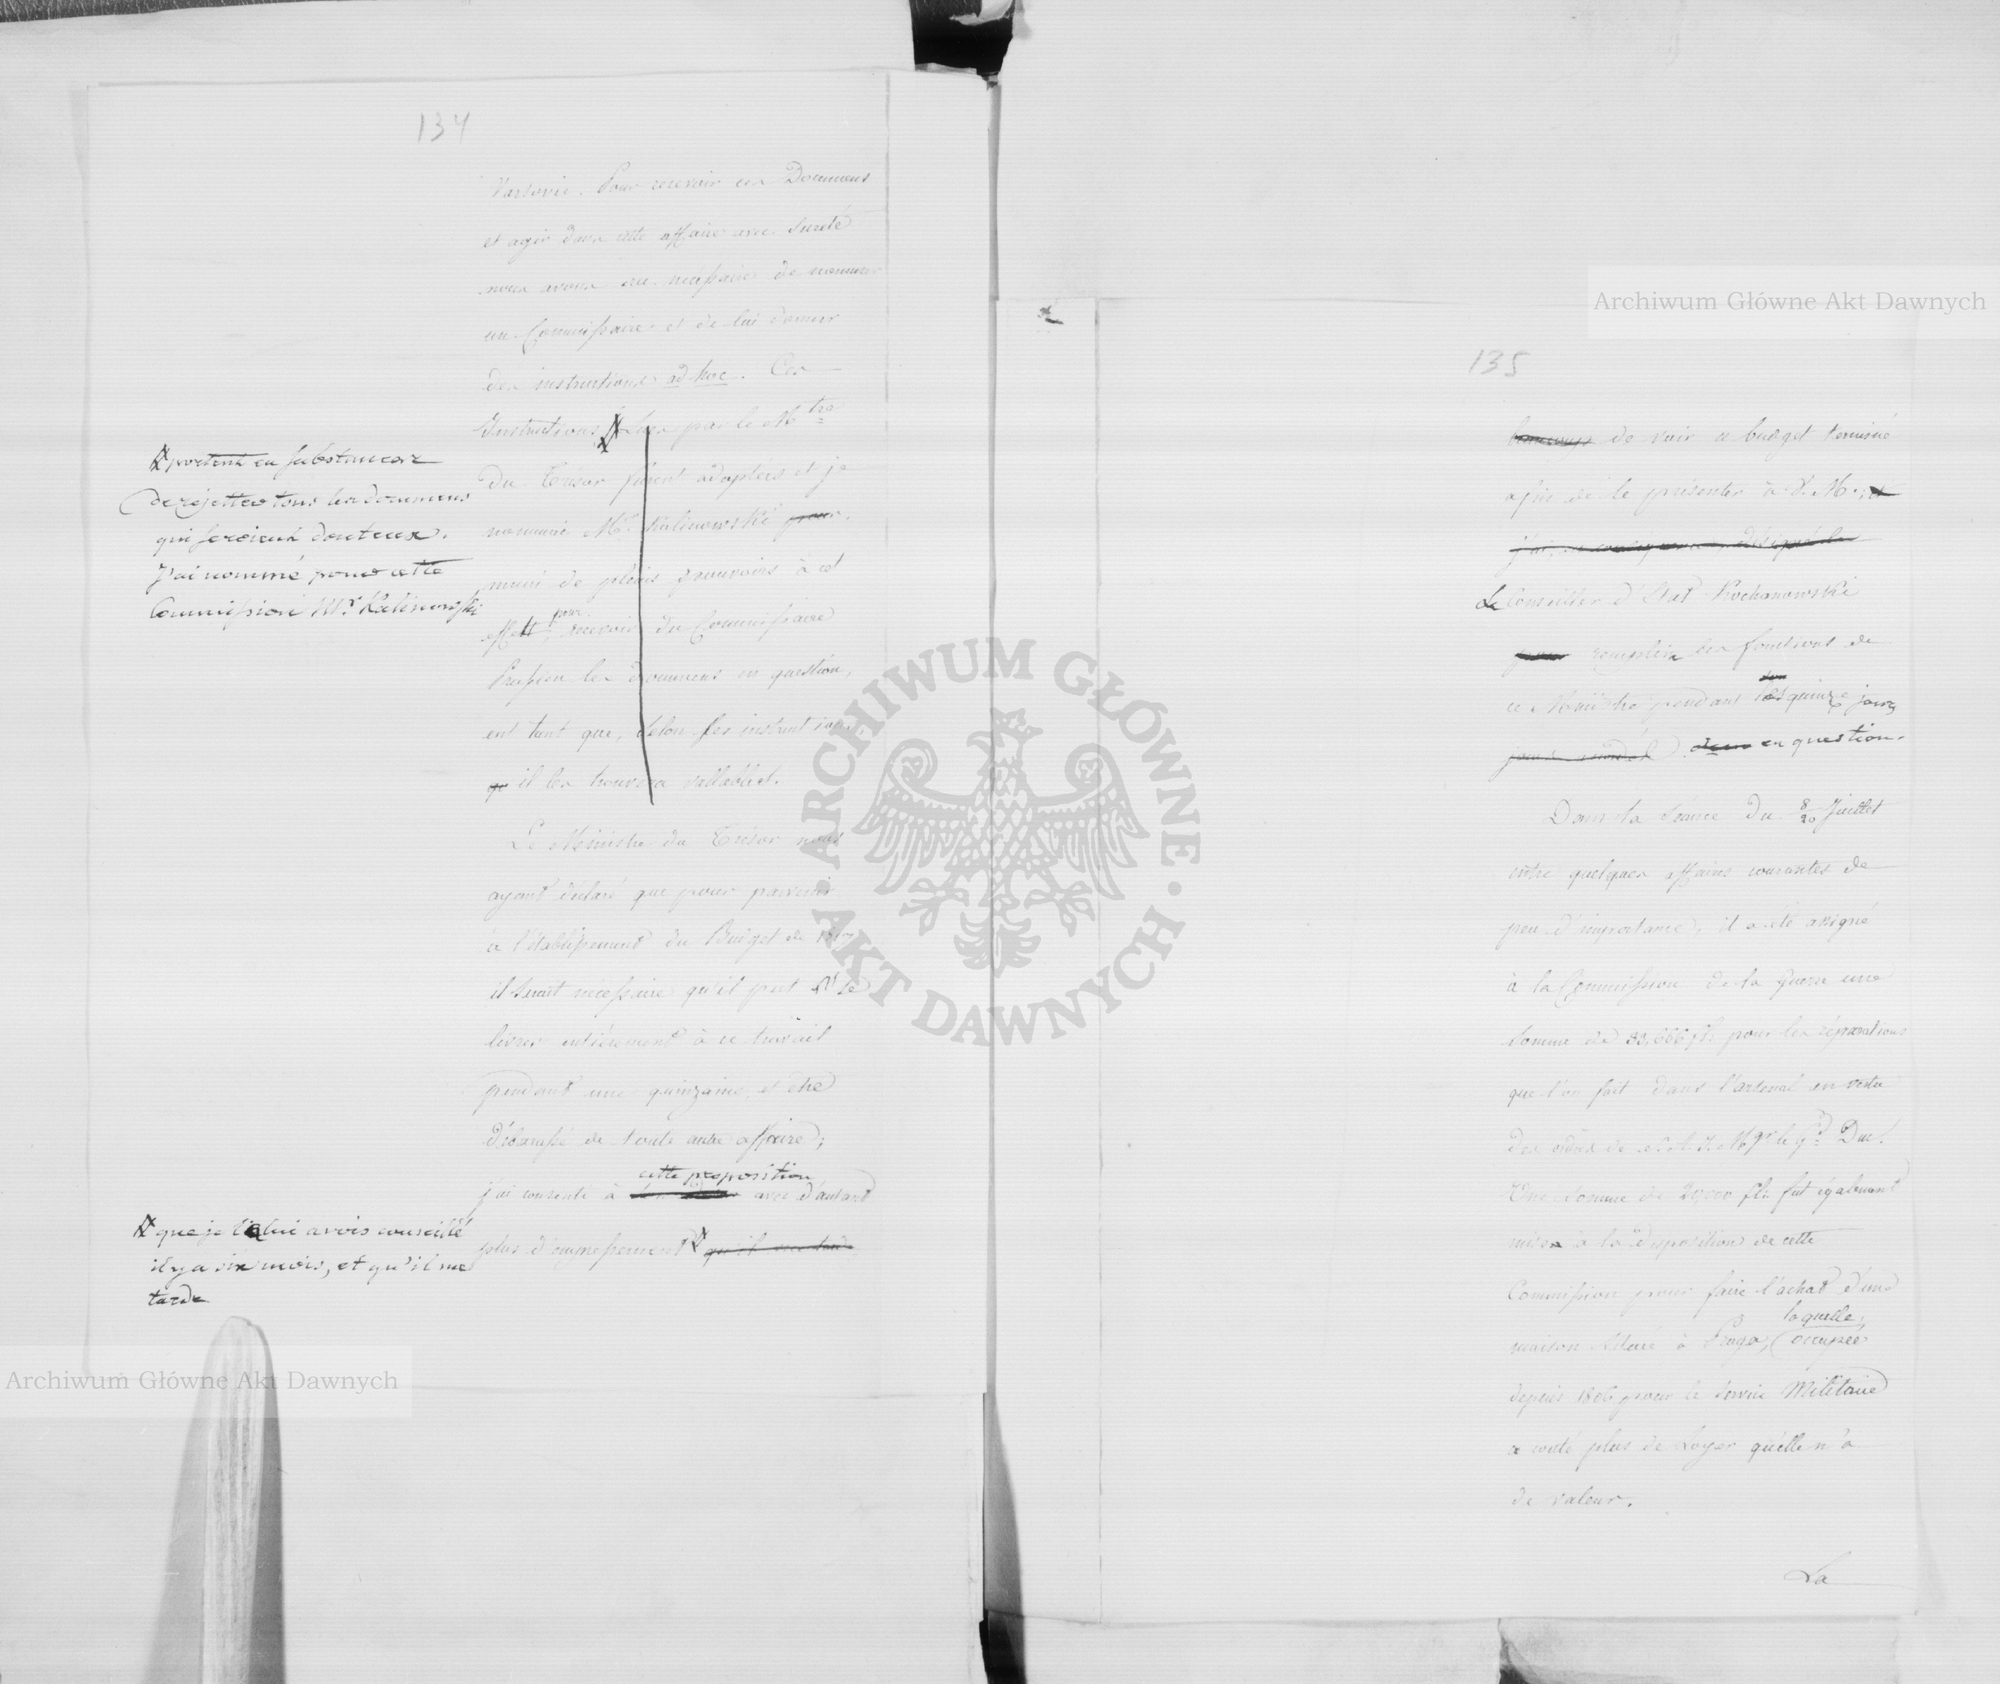 134
Varsovie. Pour recevoir ces Documens
et agir dans cette affaire avec Sureté
nous avons cru necessaire de nommer
un Commissaire et de lui donner
des instructions ad hoc. Ces
Instructions lues par le Mtre
du Tresor furent adoptées et je
nommai Mr. Kalinowski pour
muni de pleins pouvoirs à cet
effet, pour recevoir du Commissaire
Prussien les Documens en question,
en tant que, selon ses instructions
qu il les trouvera vallables.
portent en substance
de rejetter tous les documens
qui seroient douteux.
J'ai nommé pour cette
Commission Mr Kalinowski
Le Ministre du Tresor nous
ayant déclaré que pour parvenir
à l'établissement du Budget de
il serait nécessaire qu'il put se
livrer entièrement à ce travail
pendant une quinzaine, et etre
débarassé de toute autre affaire;
cette proposition
j'ai consenti à avec d'autant
plus d'empressement qu'il me tarde
que je lui avois conseillé
il y a six mois, et qu'il me
tarde
135
beaucoup de voir ce budget terminé
afin de le présenter à V. M.; et
j'ai en conséquence désigné le
Le Conseiller d'Etat Kochanowski
pour remplir les fonctions de
ce Ministre pendant les quinze jours
en question.
Dans la Séance du 8/20 Juillet
entre quelques affaires courantes de
peu d'importance, il a été assigné
à la Commission de la Guerre une
Somme de 33,666 fl. pour les réparations
que l'on fait dans l'arsenal en vertu
des ordres de S. A. I. Mgr. le Gd Duc.
Une Somme de 20,000 fl. fut également
mise à la disposition de cette
Commission pour faire l'achat d'une
maison située à Praga, laquelle, occupée
depuis 1806 pour le Service Militaire
a couté plus de Loyer qu'elle n'a
de valeur.
La
Archiwum Główne Akt Dawnych
Archiwum Główne Akt Dawnych
ARCHIWUM GŁÓWNE AKT DAWNYCH